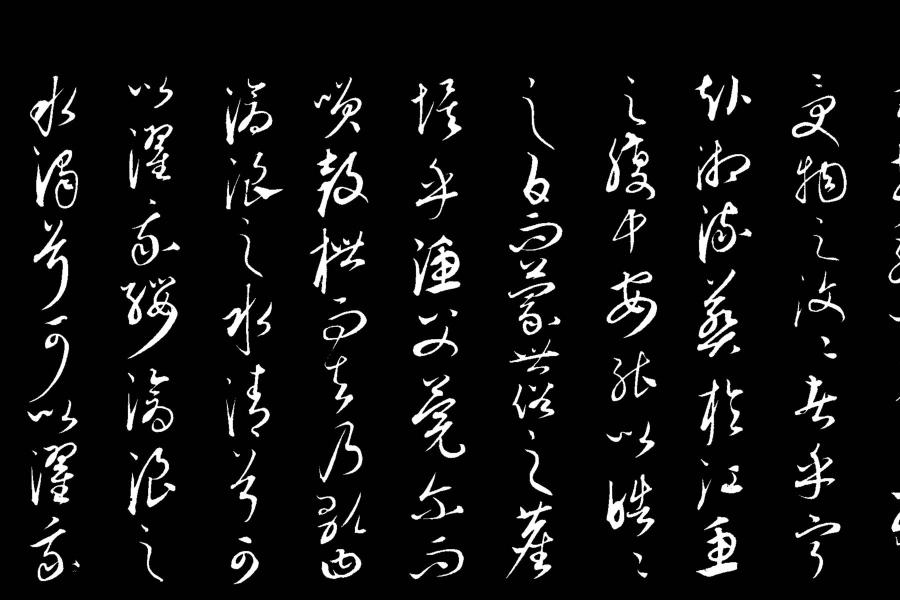 受物之汶〻者乎寧
赴湘流葬於江魚
之腹中安能以皓〻
之白而蒙世俗之塵
埃乎漁父莞尔而
咲鼓枻而去乃歌曰
滄浪之水清兮可
以濯我纓滄浪之
水濁兮可以濯我